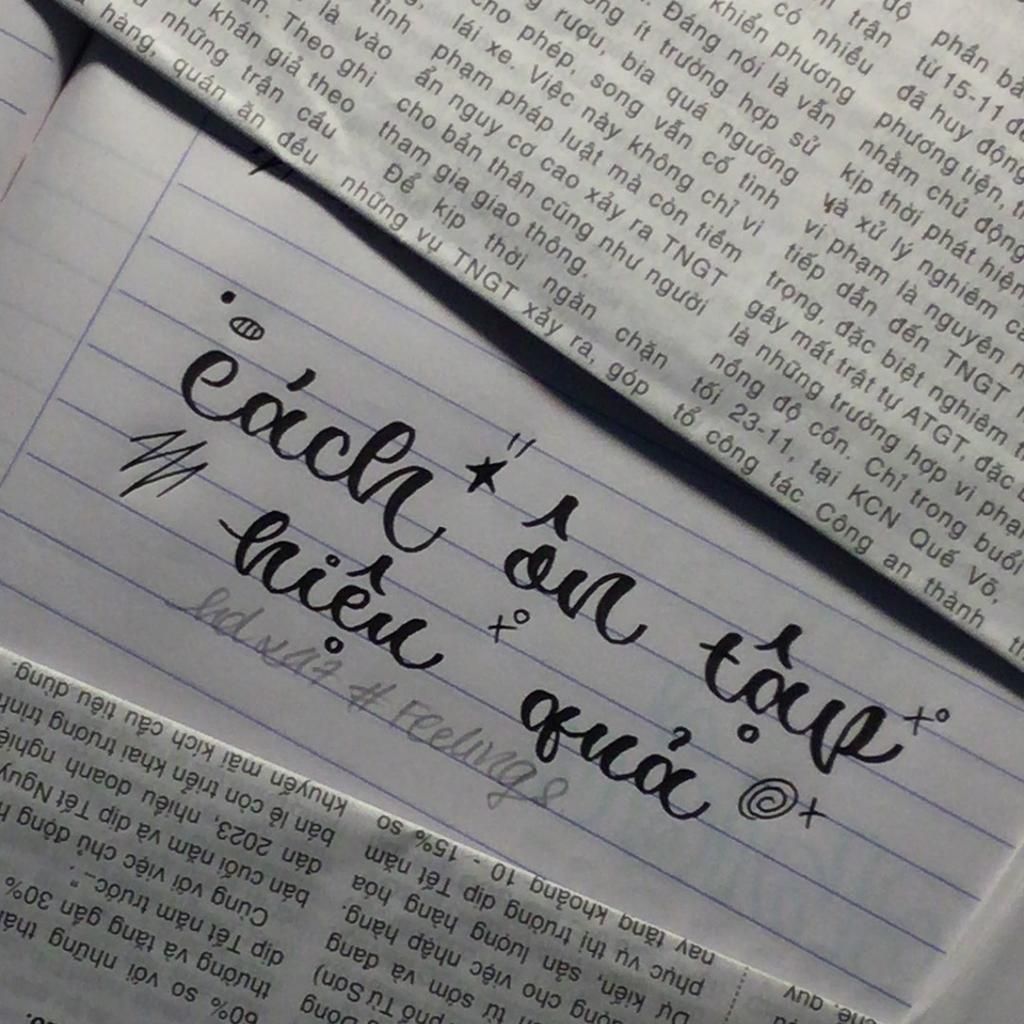 độ
khiển phương
có nhiều
Đáng nói là vẫn
ít trường hợp sử
rượu, bia quá ngưỡng
cho phép, song vẫn cố tình
lái xe. Việc này không chỉ vi
phạm pháp luật mà còn tiềm
ẩn nguy cơ cao xảy ra TNGT
cho bản thân cũng như người
tham gia giao thông.
Để kịp thời ngăn chặn
những vụ TNGT xảy ra, góp
là vào
Theo ghi
khán giả theo
những trận cầu
hàng, quán ăn đều
phần
từ 15-11
đã huy động
phương tiện,
nhằm chủ động
kịp thời phát hiện
và xử lý nghiêm
vi phạm là nguyên
tiếp dẫn đến TNGT
trọng, đặc biệt nghiêm
gây mất trật tự ATGT, đặc
là những trường hợp vi phạm
nồng độ cồn. Chỉ trong buổi
tối 23-11, tại KCN Quế Võ,
tổ công tác Công an thành
cách ôn tập
hiệu quả
# Feelings
khuyến mãi kích cầu tiêu dùng.
bán lẻ còn triển khai chương trình
dân 2023, nhiều doanh
bán cuối năm và dịp Tết
Cùng với việc chủ động
dịp Tết năm trước...".
thường và tăng gần 30%
60% so với những
nay tăng khoảng 10 - 15% so
phục vụ thị trường dịp Tết năm
Dự kiến, sản lượng hàng hóa
động cho việc nhập hàng.
từ sớm và đang
phố Từ Sơn)
Đông